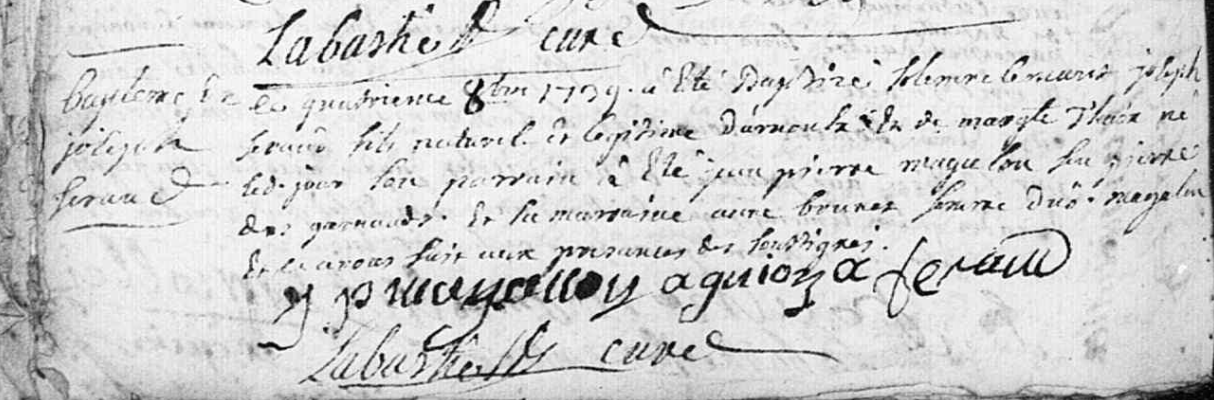 Labastie curé
baptême de
joseph
feraud
le quatrieme 8bre 1739. a Eté Baptizé solemnelement joseph
feraud fils naturel et legitime d'arnoulx et de margte né
led. jour son parrain a Eté jean pierre magalon feu pierre
des et la marraine anne brunet femme dud. magalon
et l'avons fait aux presances des soussignés.
j p magallon aguion a feraud
Labastie curé